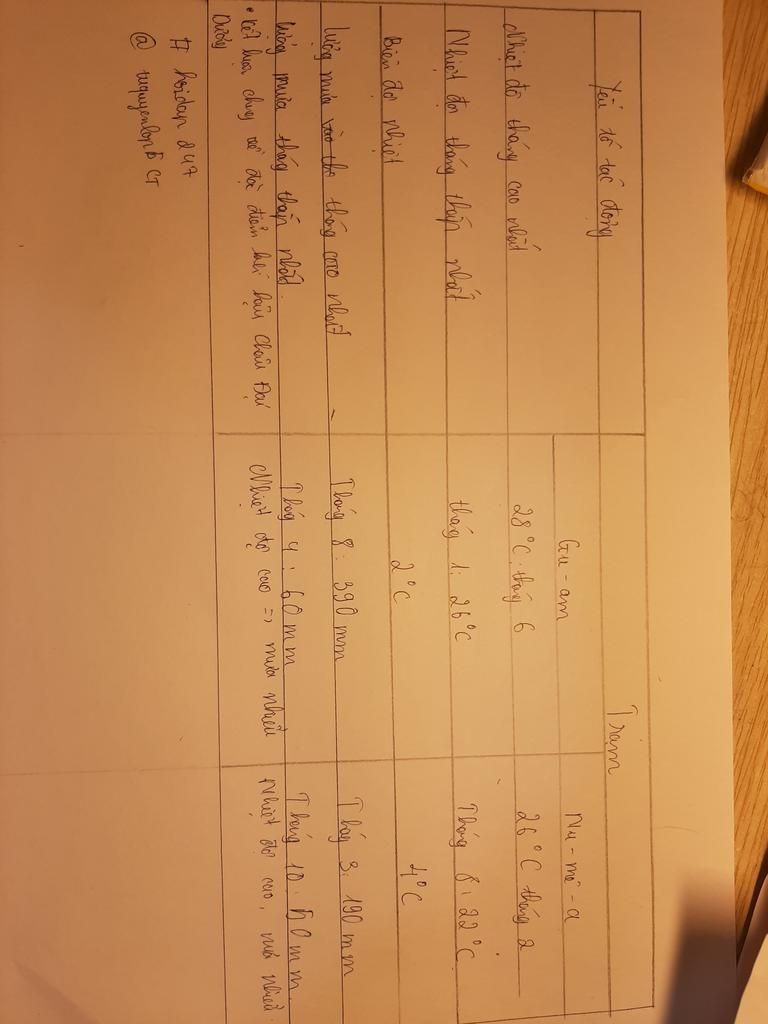 Yếu tố tác động
Trạm
Gu-am
Nu-mê-a
Nhiệt độ tháng cao nhất
28°C: tháng 6
26°C tháng 2
Nhiệt độ tháng thấp nhất
tháng 1: 26°C
Tháng 8: 22°C
Biên độ nhiệt
2°C
4°C
lượng mưa tháng cao nhất
Tháng 8: 390mm
Tháng 3: 190mm
lượng mưa tháng thấp nhất.
Tháng 4: 60mm
Tháng 10: 50mm.
• Kết luận chung về đặc điểm khí hậu Châu Đại
Dương
Nhiệt độ cao => mưa nhiều
Nhiệt độ cao, mưa nhiều.
# hoidap 247
@ nguyenlop5 CT